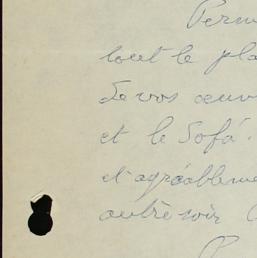 Perm
tout le pla
de vos œuv
et le Sofá.
et agréableme
autre soir